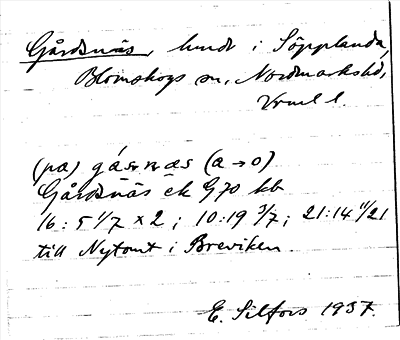 Gårdsnäs, lund i Söpplanda,
Blomskogs sn, Nordmarks hd,
Vrml l.
(på) gásnæs (a→o)
Gårdsnäs ek G70 kb
16:5 1/7 x 2; 10:19 3/7; 21:14 11/21
till Nytomt i Breviken.
E. Silfors 1937.